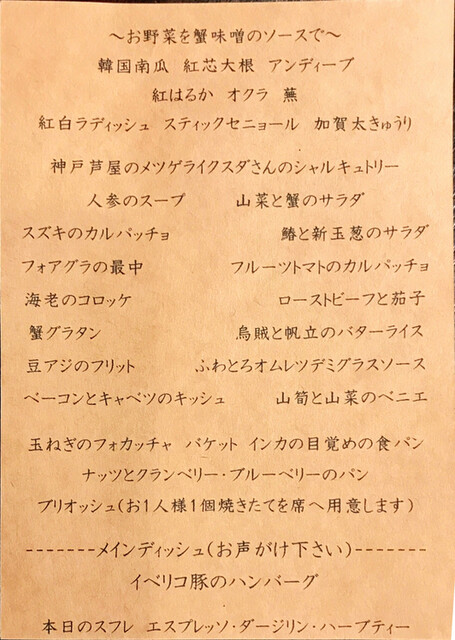 ～お野菜を蟹味噌のソースで～
韓国南瓜 紅芯大根 アンディーブ
紅はるか オクラ 蕪
紅白ラディッシュ スティックセニョール 加賀太きゅうり
神戸芦屋のメツゲライクスダさんのシャルキュトリー
人参のスープ 山菜と蟹のサラダ
スズキのカルパッチョ 鰆と新玉葱のサラダ
フォアグラの最中 フルーツトマトのカルパッチョ
海老のコロッケ ローストビーフと茄子
蟹グラタン 烏賊と帆立のバターライス
豆アジのフリット ふわとろオムレツデミグラスソース
ベーコンとキャベツのキッシュ 山筍と山菜のベニエ
玉ねぎのフォカッチャ バケット インカの目覚めの食パン
ナッツとクランベリー・ブルーベリーのパン
ブリオッシュ(お1人様1個焼きたてを席へ用意します)
-------メインディッシュ(お声がけ下さい)-------
イベリコ豚のハンバーグ
本日のスフレ エスプレッソ・ダージリン・ハーブティー